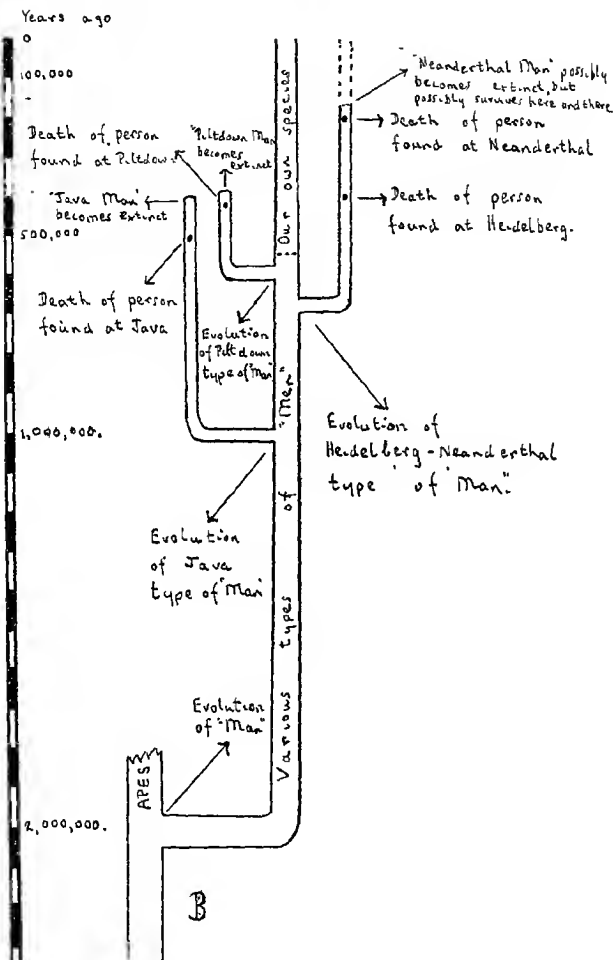 Years ago
0
100,000
500,000
1,000,000.
2,000,000.
"Neanderthal Man" possibly
becomes extinct, but
possibly survives here and there
Death of person
found at Neanderthal
Death of person
found at Heidelberg.
Death of person
found at Piltdown.
"Piltdown Man
becomes
extinct
"Java Man"
becomes extinct
Death of person
found at Java
Evolution
of Piltdown
type of "Man"
Evolution of
Heidelberg-Neanderthal
type of "Man."
Evolution
of Java
type of "Man"
Evolution
of "Man"
APES
Various types of "Men"
Our own species
B